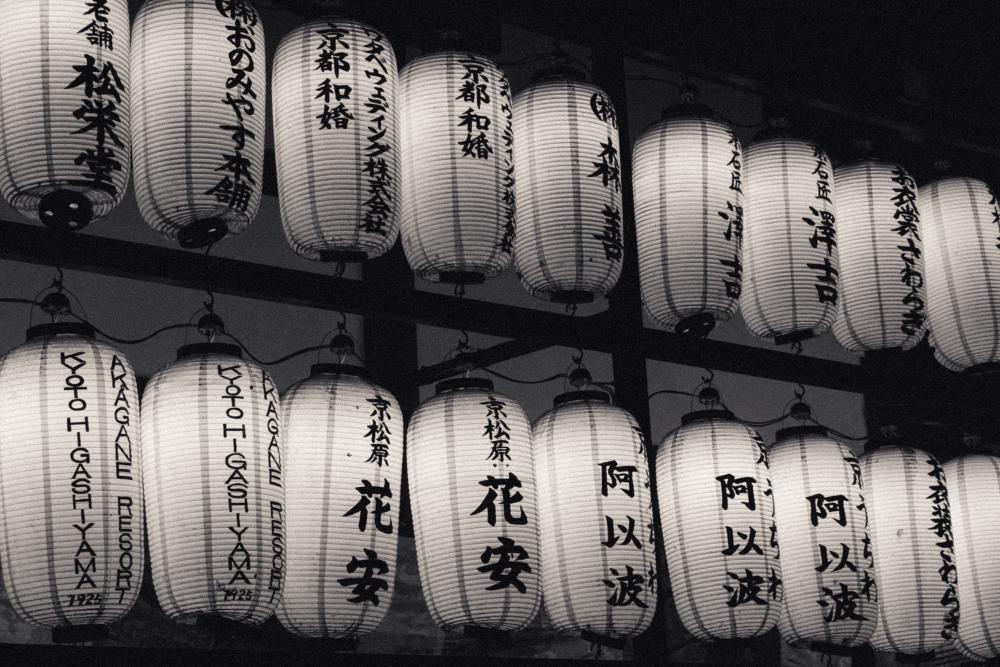 老舗
松栄堂
(株)おのみやす本舗
ワタベウェディング株式会社
京都和婚
京都和婚
(株)森善
石匠
澤吉
石匠
澤吉
お衣裳さわらぎ
AKAGANE RESORT
KYOTO HIGASHIYAMA
1925
KAGANE RESORT
KYOTO HIGASHIYAMA
1925
京松原
花安
京松原
花安
阿以波
阿以波
阿以波
お衣裳さわらぎ